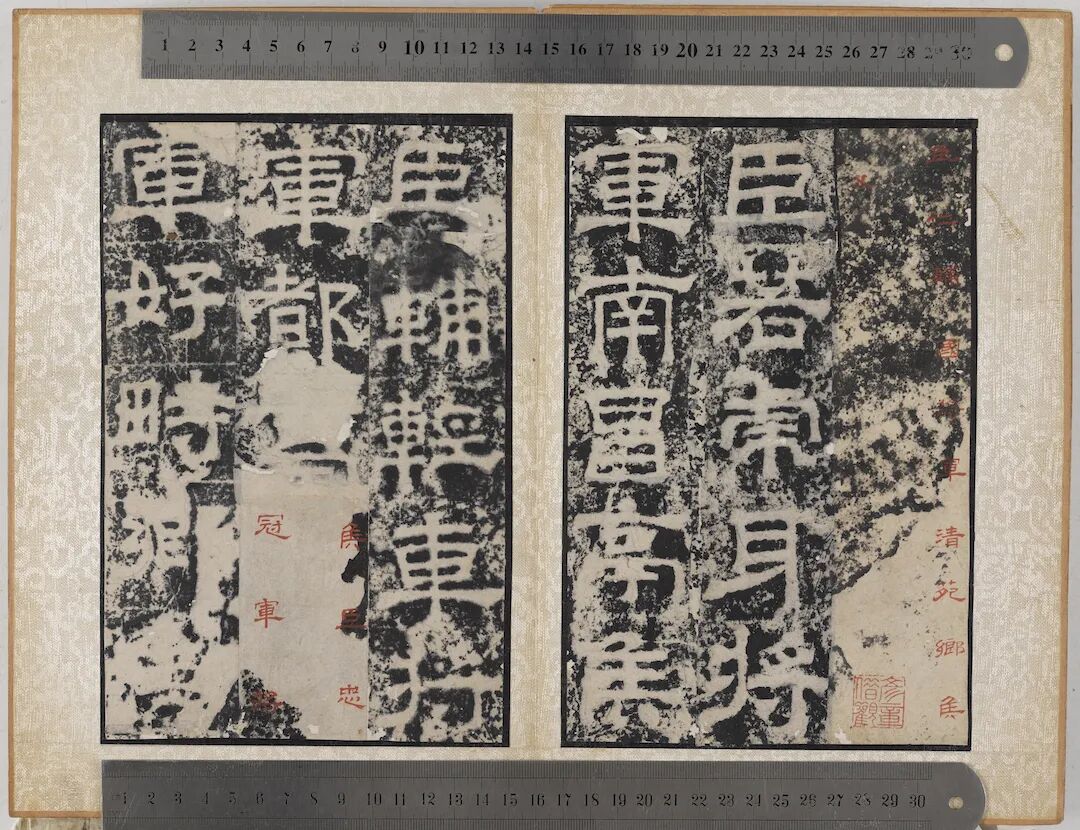 1 2 3 4 5 6 7 8 9 10 11 12 13 14 15 16 17 18 19 20 21 22 23 24 25 26 27 28 29 30
臣仁輔國將軍清苑鄉侯
臣若虎牙將
軍南昌亭侯
臣輔輕車將
軍都
侯臣忠
冠軍將
軍好畤鄉
1 2 3 4 5 6 7 8 9 10 11 12 13 14 15 16 17 18 19 20 21 22 23 24 25 26 27 28 29 30